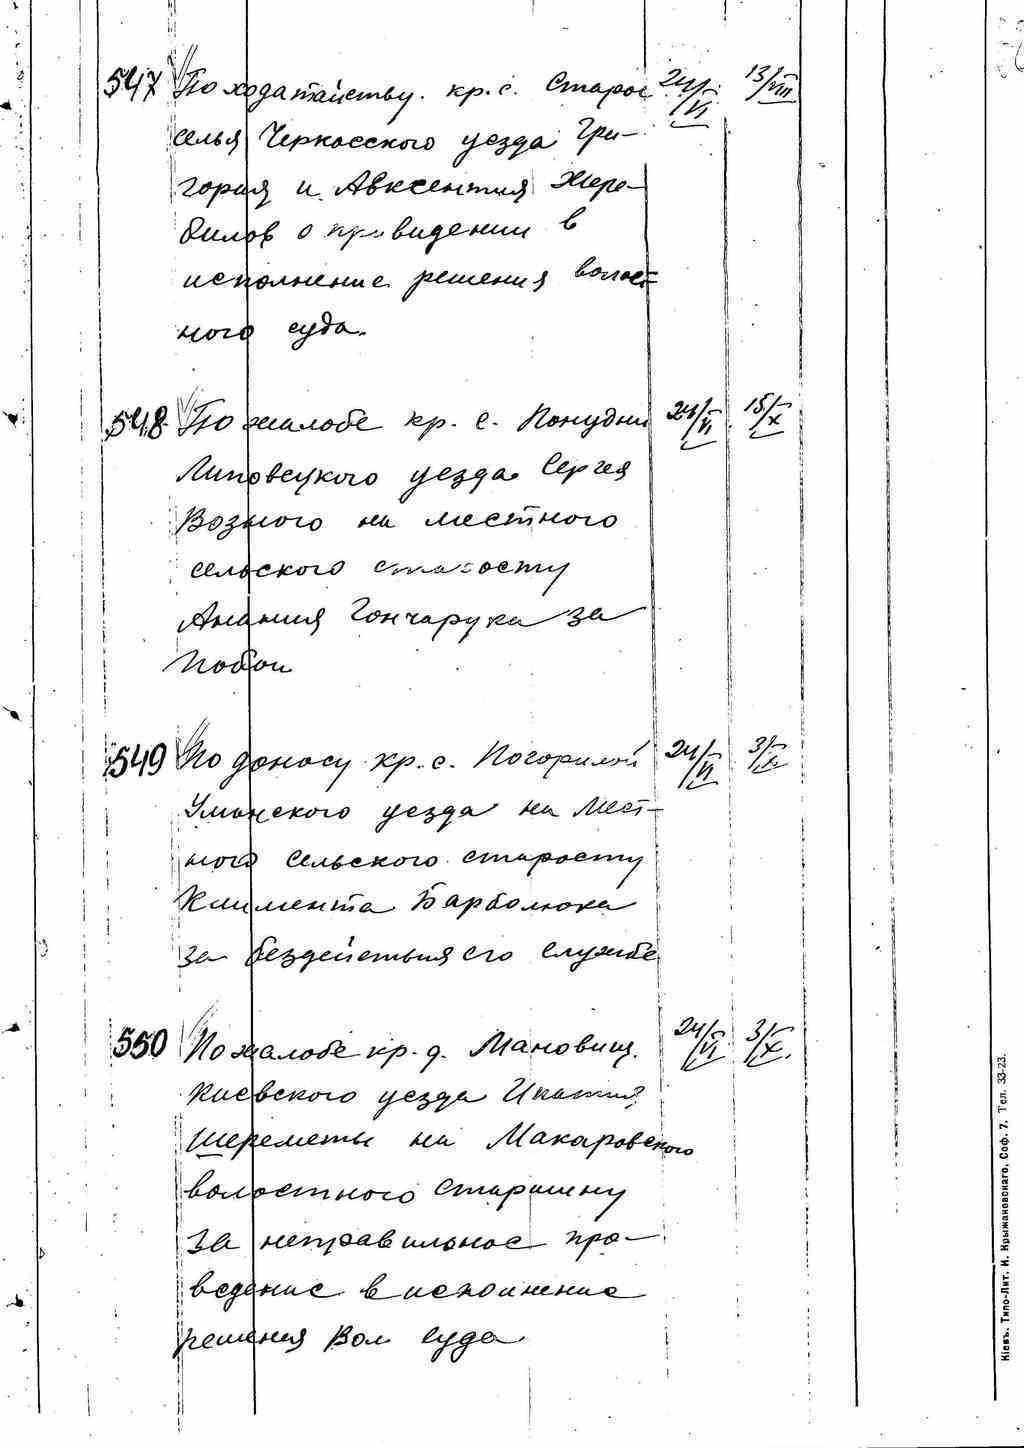 547 По ходатайству кр. с. Старо- 24/VI 13/VIII
селья Черкасского уезда Гри-
гория и Авксентия Жере-
билов о приведении в
исполнение решения волост-
ного суда.
548 По жалобе кр. с. 24/VI 15/X
Липовецкого уезда Сергея
Возного на местного
сельского старосту
Анания Гончарука за
побои
549 По доносу кр. с. Погорилой 24/VI 3/X
Уманского уезда на мест-
ного сельского старосту
Климента Барболюка
за бездействия его службе
550 По жалобе кр. д. Мановищ. 24/VI 3/X.
Киевского уезда
Шереметы на Макаровского
волостного старшину
за неправильное про-
ведение в исполнение
решения Вол суда
Кіевъ. Типо-Лит. И. Крыжановскаго, Соф. 7. Тел. 33-23.